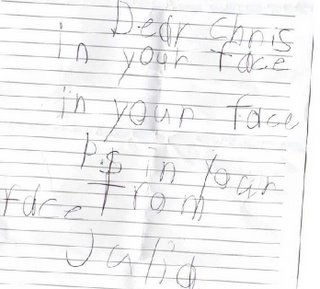 Dear Chris
in your face
in your face
P.S in your
face From
Julia